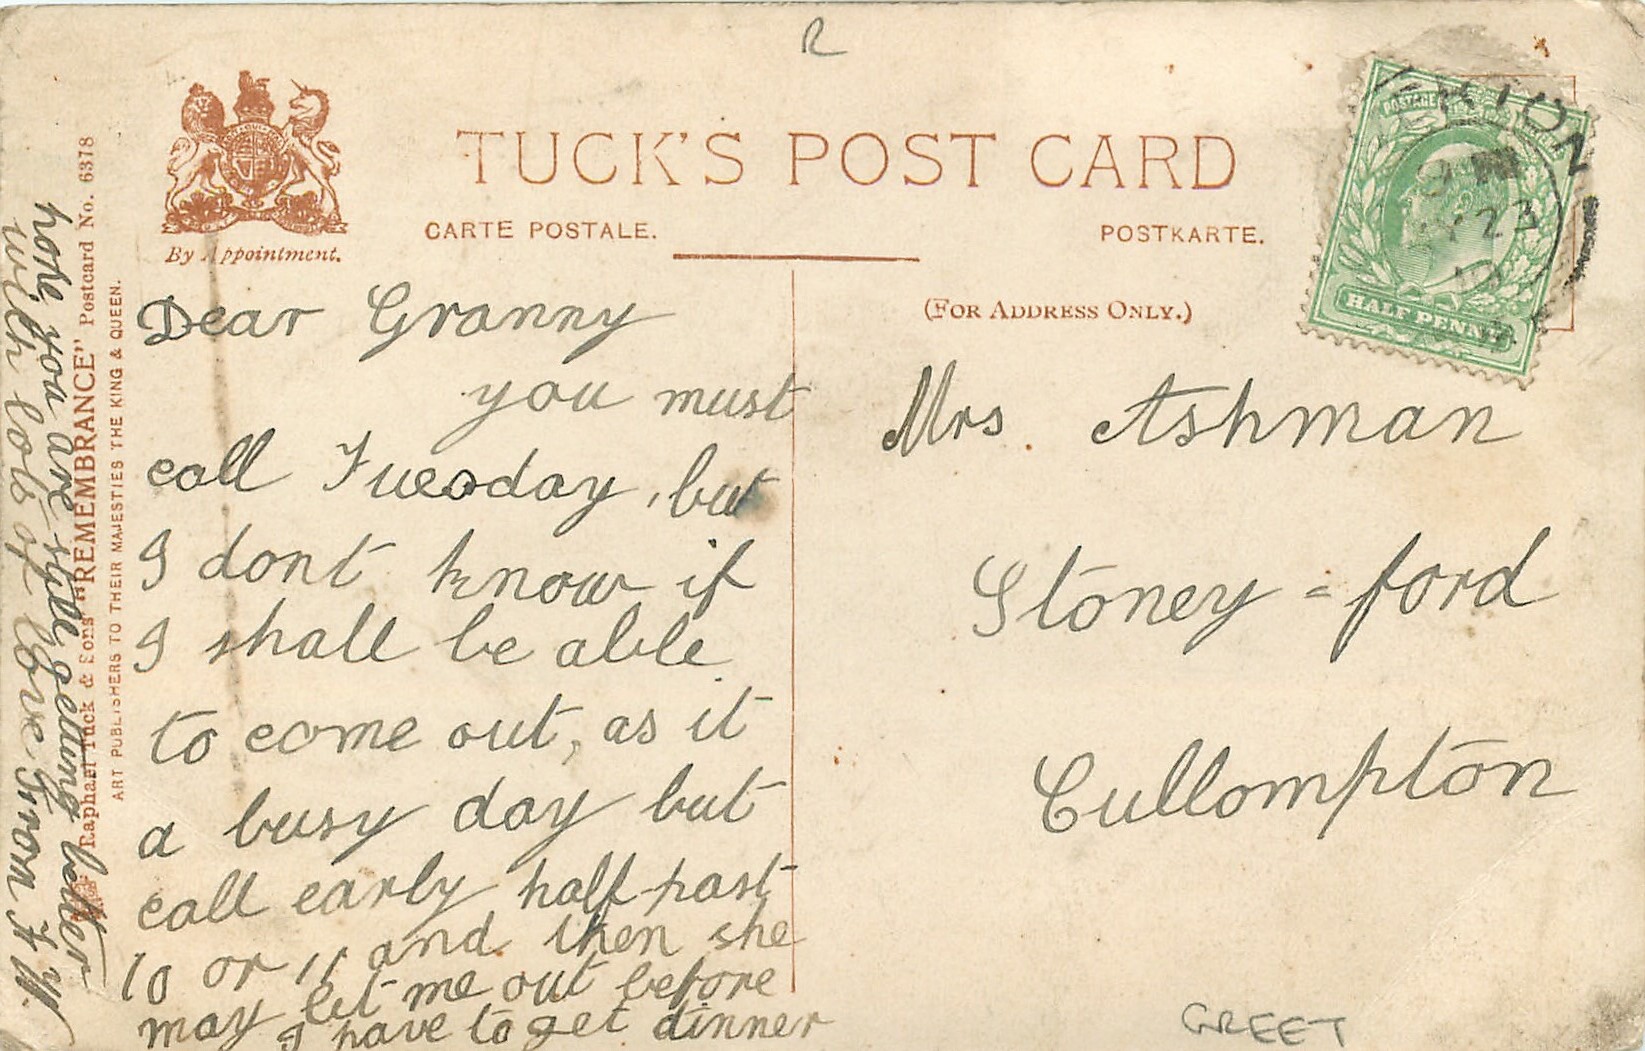 R
TUCK'S POST CARD
CARTE POSTALE.
POSTKARTE.
By Appointment.
(FOR ADDRESS ONLY.)
POSTAGE
9 
Y 23
10
HALF PENNY
Dear Granny
you must
call Tuesday, but
I dont know if
I shall be able
to come out, as it
a busy day but
call early half past
10 or 11 and then she
may let me out before
I have to get dinner
hope you are still getting better
with lots of love from
Mrs Ashman
Stoney=ford
Cullompton
GREET
Raphael Tuck & Sons' "REMEMBRANCE" Postcard No. 6378
ART PUBLISHERS TO THEIR MAJESTIES THE KING & QUEEN.